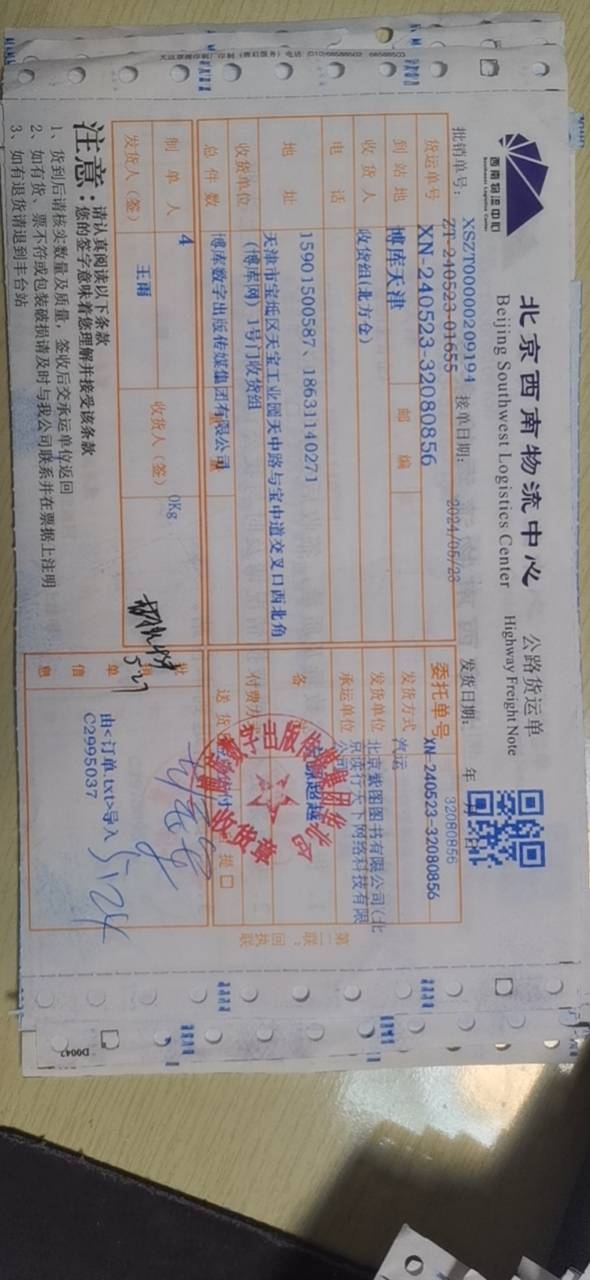 西南物流中心
Southwest Logistics Center
北京西南物流中心
Beijing Southwest Logistics Center
公路货运单
Highway Freight Note
批销单号：
XSZT00000209194
ZT-240523-01655
接单日期：
2024/05/23
发货日期：
年
货运单号
XN-240523-32080856
到站地
博库天津
邮 编
收 货 人
收货组(北方仓)
电 话
15901500587、18631140271
地 址
天津市宝坻区天宝工业园天中路与宝中道交叉口西北角
(博库网) 1号门收货组
收货单位
博库数字出版传媒集团有限公司
总 件 数
4
0Kg
制 单 人
王雨
发货人（签）
收货人（签）
5.27
32080856
委托单号
XN-240523-32080856
发货方式
汽运
发货单位
北京紫图图书有限公司(北
京读行天下网络科技有限
公司)
承运单位
备
付费方
送 货
提 □
收货章
单
信
息
由<订单.txt>导入
C2995037
5.24
第二联：回执联
注意：
请认真阅读以下条款
您的签字意味着您理解并接受该条款
1、货到后请核实数量及质量，签收后交承运单位返回
2、如有货、票不符或包装破损请及时与我公司联系并在票据上注明
3、如有退货请退到丰台站